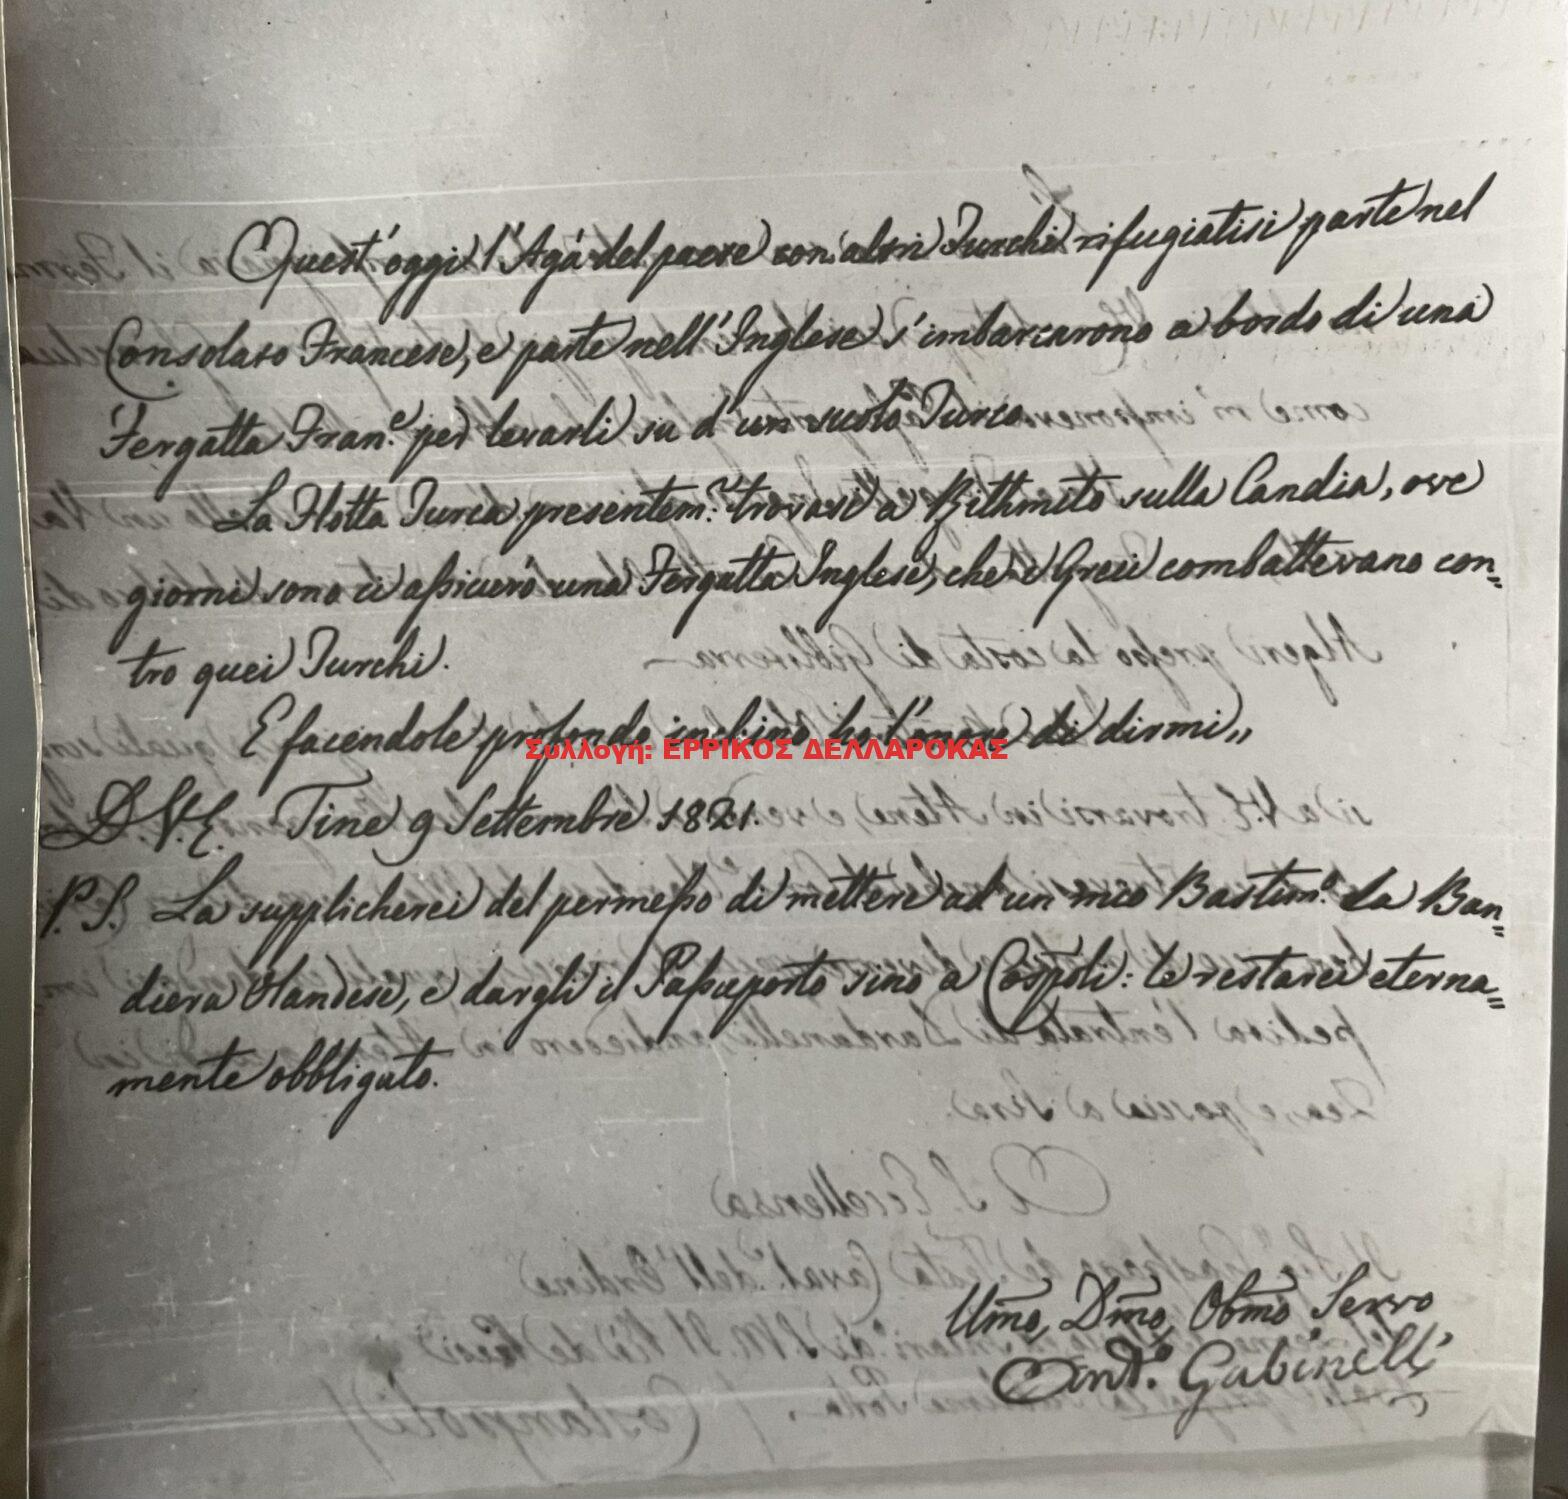 Quest'oggi l'Agà del paese con altri Turchi rifugiatisi parte nel
Consolato Francese, e parte nell'Inglese s'imbarcarono a bordo di una
Fergatta Fran.e per levarli su d'un suolo Turco
La Flotta Turca presentem.e trovasi a Rithmito sulla Candia, ove
giorni sono ci assicurò una Fergatta Inglese, che i Greci combattevano con=
tro quei Turchi.
E facendole profondo inchino ho l'onore di dirmi,,
Συλλογή: ΕΡΡΙΚΟΣ ΔΕΛΛΑΡΟΚΑΣ
D. V. E. Tine 9 Settembre 1821.
P. S. La supplicherei del permesso di mettere ad un mio Bastim.o la Ban=
diera Olandese, e dargli il Passaporto sino a Cospoli: le restarei eterna=
mente obbligato.
Umo, Dmo, Obmo Servo
Ant.o Gabinelli